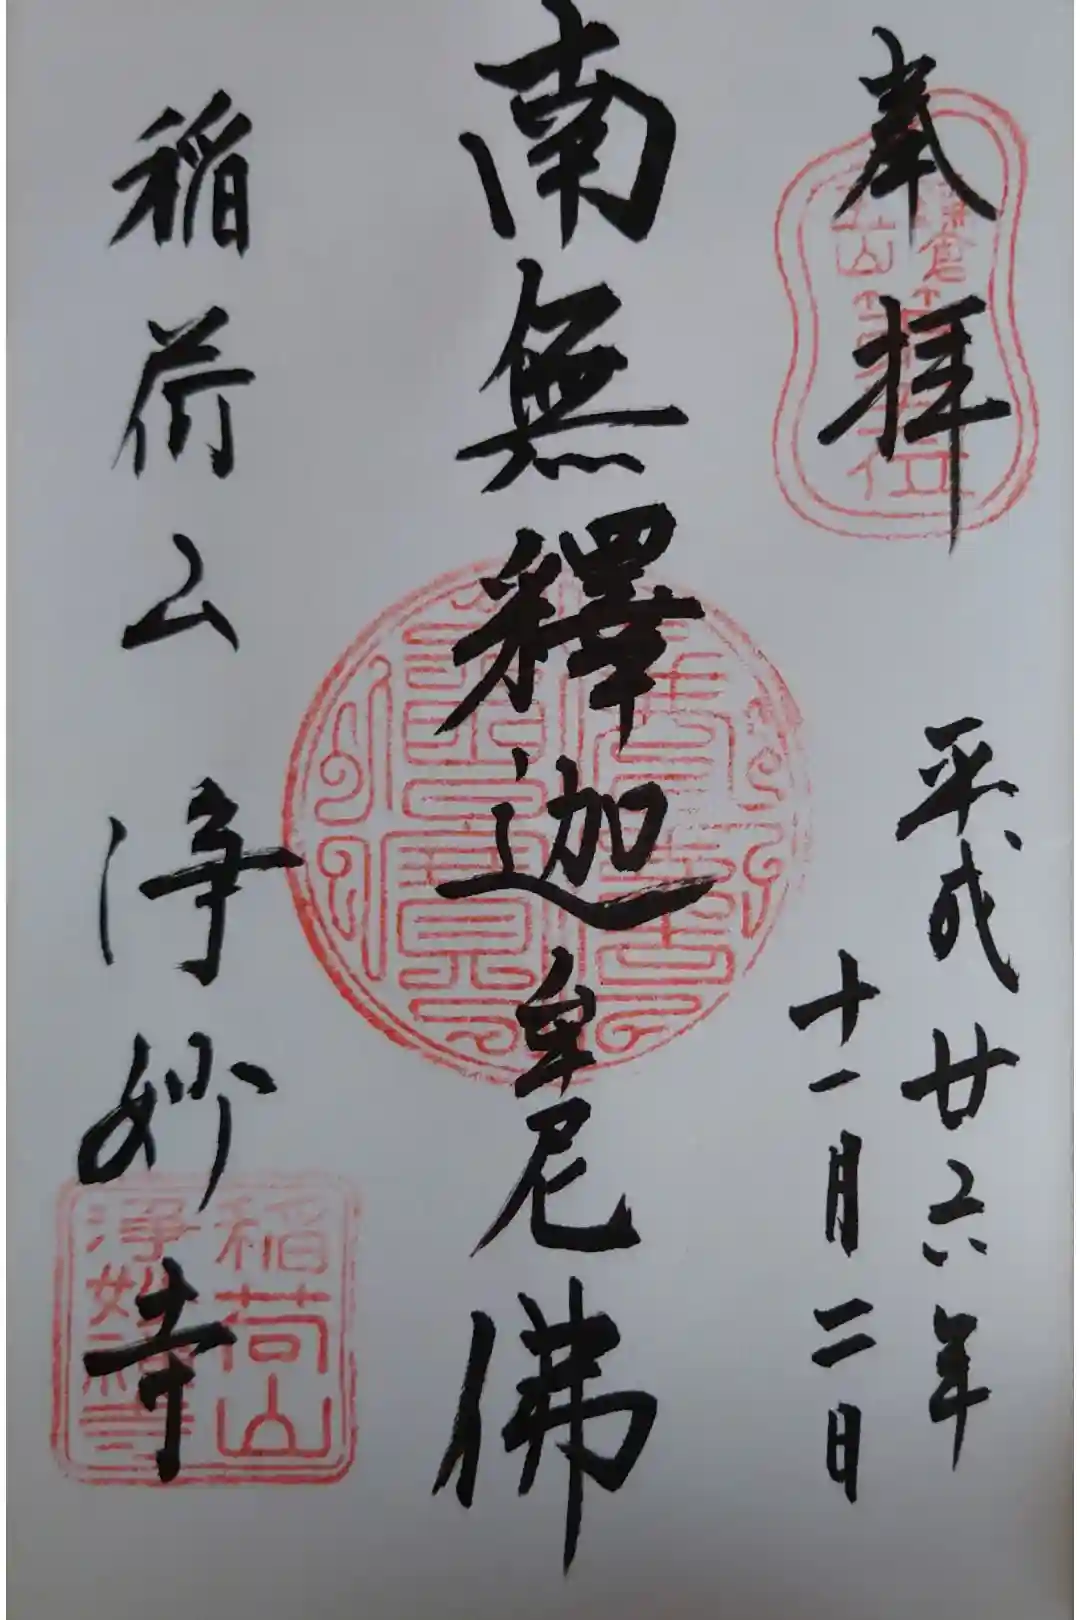 奉拝
平成廿六年
十一月二日
南無釋迦牟尼佛
稲荷山 浄妙寺
稲荷山
浄妙禅寺